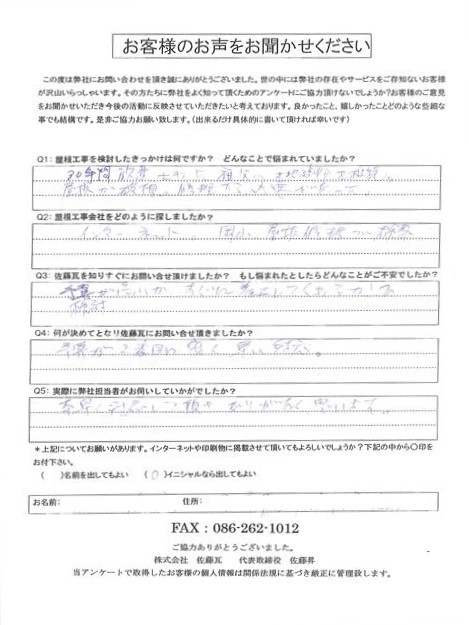 お客様のお声をお聞かせください
この度は弊社にお問い合わせを頂き誠にありがとうございました。世の中には弊社の存在やサービスをご存知ないお客様
が沢山いらっしゃいます。その方たちに弊社をよく知って頂くためのアンケートにご協力頂けないでしょうか?お客様のご意見
をお聞かせいただき今後の活動に反映させていただきたいと考えております。良かったこと、嬉しかったことどのような些細な
事でも結構です。是非ご協力お願い致します。(出来るだけ具体的に書いて頂ければ幸いです)
Q1:屋根工事を検討したきっかけは何ですか? どんなことで悩まれていましたか?
30年間
屋根が破損。修理する必要があった。
Q2:屋根工事会社をどのように探しましたか?
インターネット。岡山 屋根修理 検索
Q3:佐藤瓦を知りすぐにお問い合せ頂けましたか? もし悩まれたとしたらどんなことがご不安でしたか?
検討
Q4:何が決めてとなり佐藤瓦にお問い合せ頂きましたか?
Q5:実際に弊社担当者がお伺いしていかがでしたか?
ありがたく思います。
*上記についてお願いがあります。インターネットや印刷物に掲載させて頂いてもよろしいでしょうか?下記の中から〇印を
お付下さい。
( )名前を出してもよい (〇)イニシャルなら出してもよい
お名前: 住所:
FAX:086-262-1012
ご協力ありがとうございました。
株式会社 佐藤瓦 代表取締役 佐藤昇
当アンケートで取得したお客様の個人情報は関係法規に基づき厳正に管理致します。